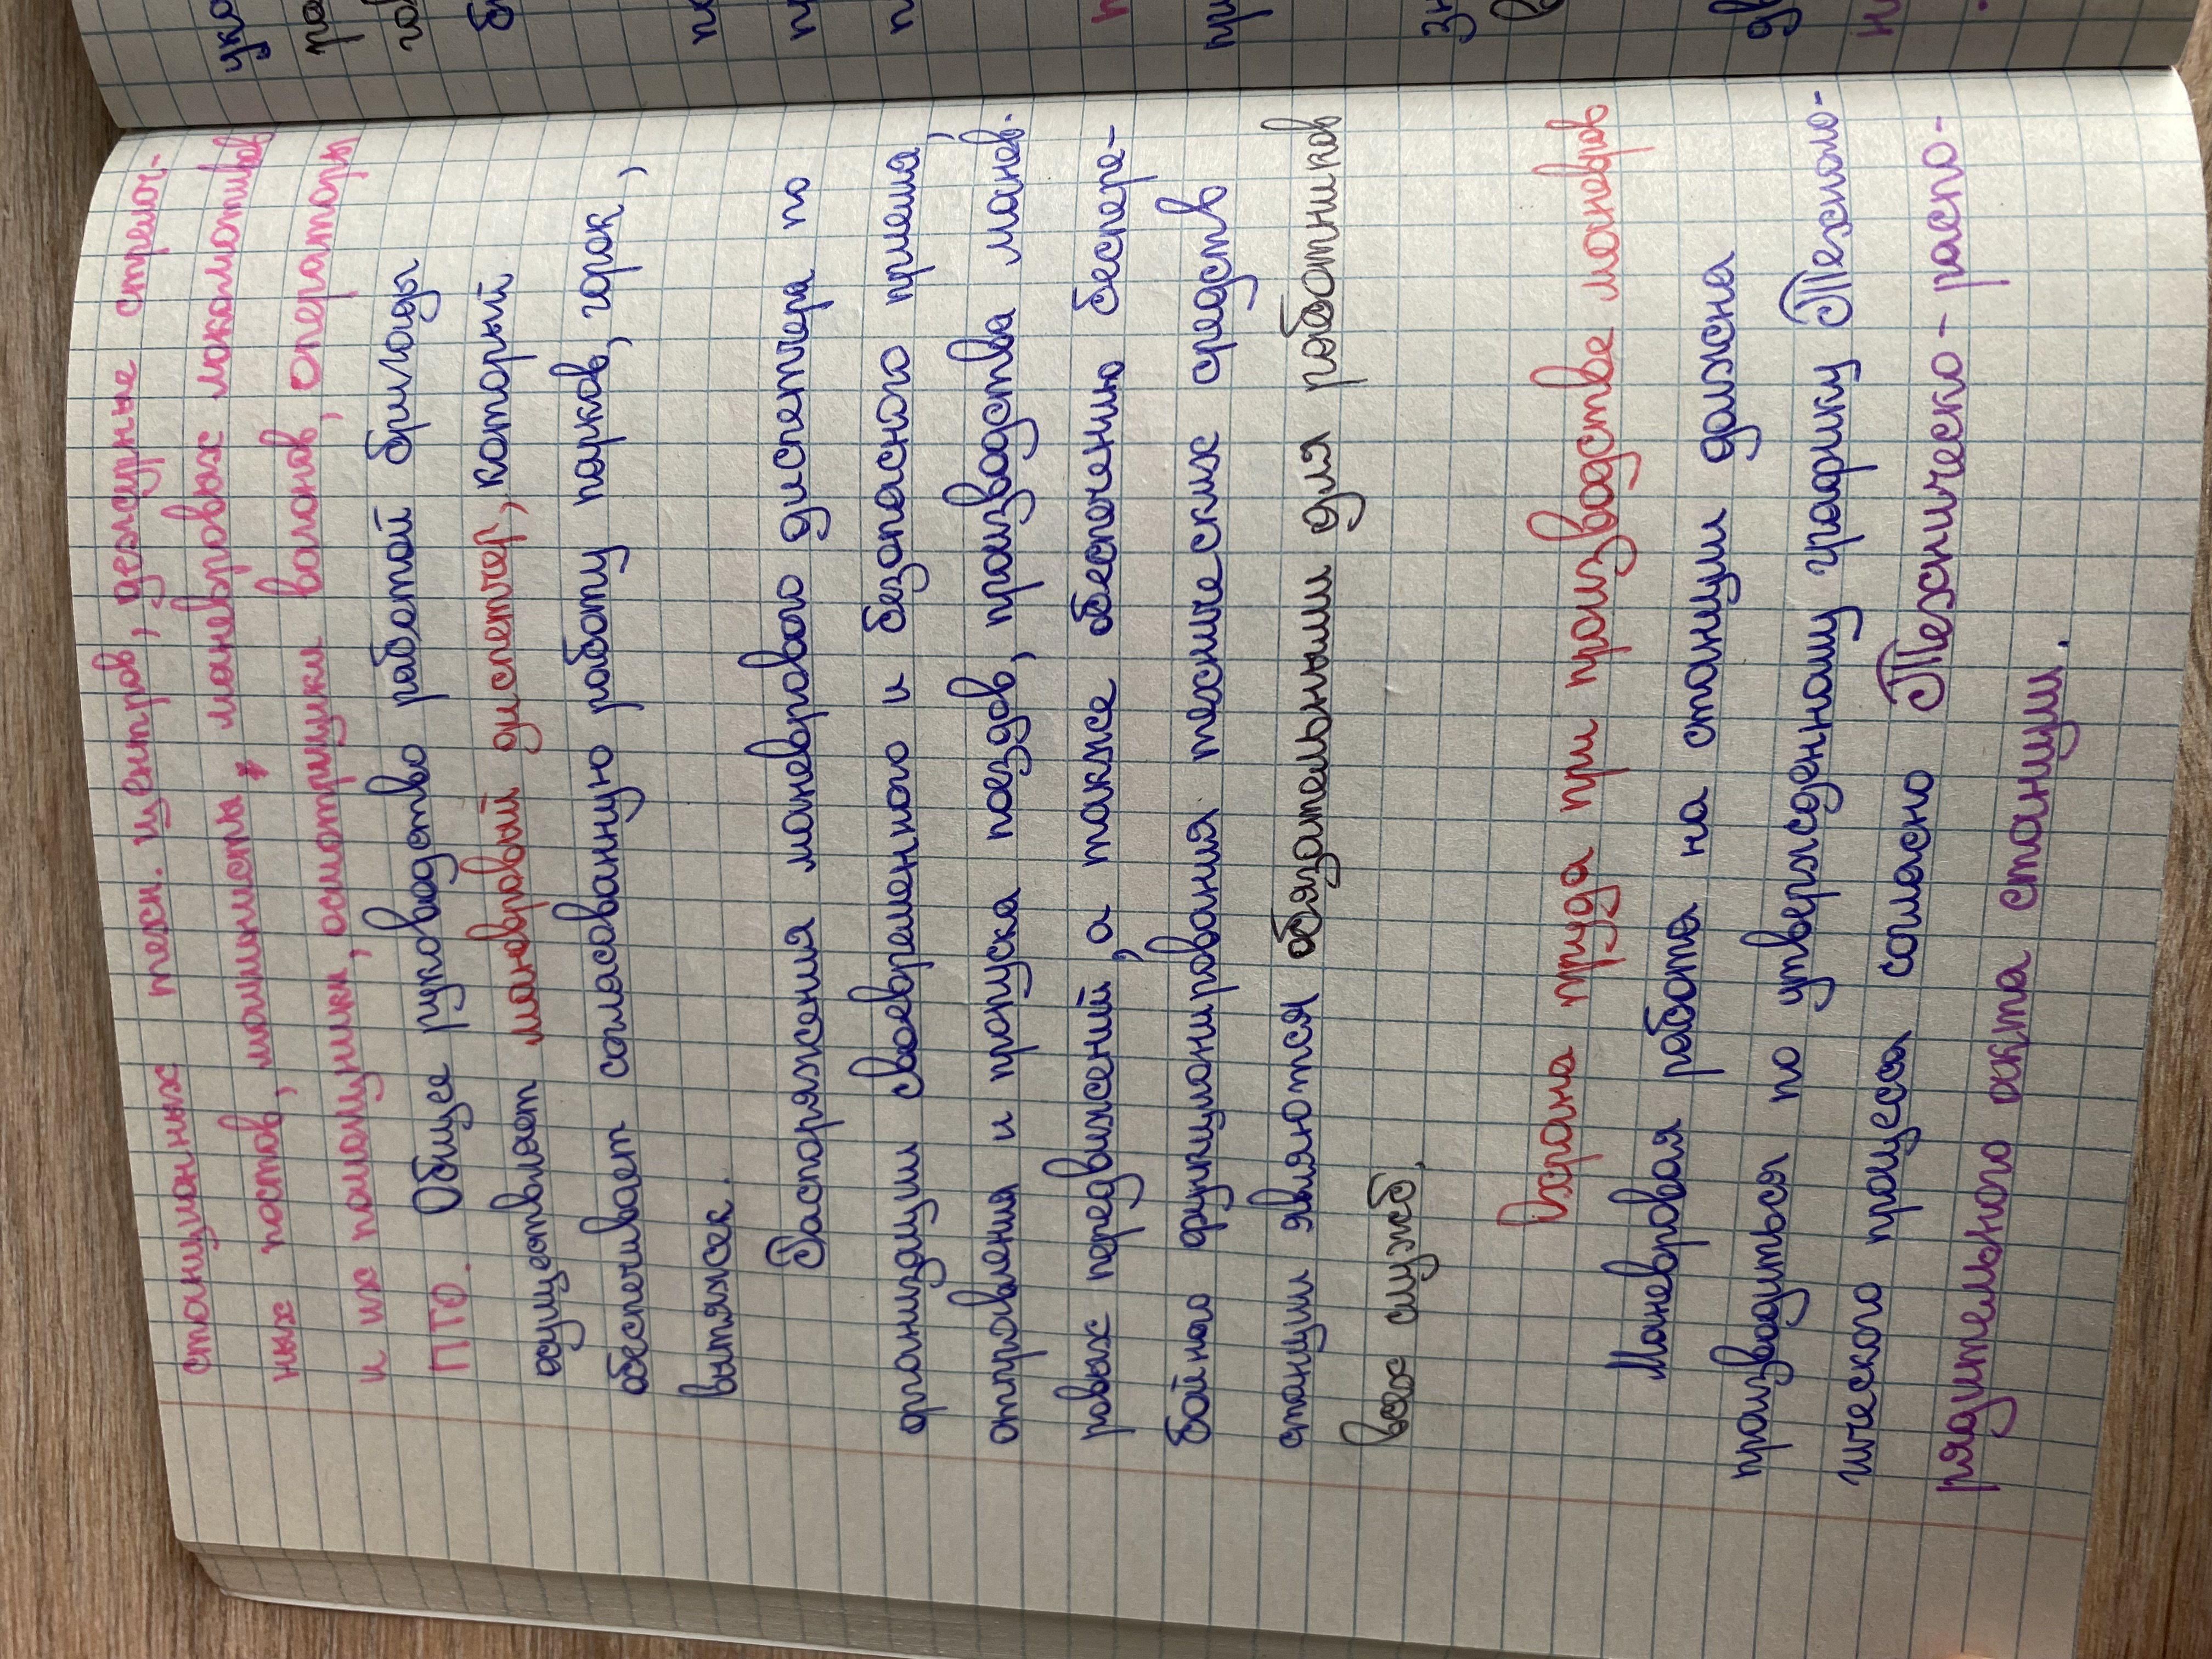 станционных техн. центров, дежурные стрелоч-
ных постов, машинисты маневровых локомотивов
и их помощники, осмотрщики вагонов, операторы
ПТО. Общее руководство работой бригады
осуществляет маневровый диспетчер, который
обеспечивает согласованную работу парков, горок,
вытяжек.
Распоряжения маневрового диспетчера по
организации своевременного и безопасного приема,
отправления и пропуска поездов, производства манев-
ровых передвижений, а также обеспечению беспере-
бойного функционирования технических средств
станции являются обязательными для работников
всех служб.
Охрана труда при производстве маневров
Маневровая работа на станции должна
производиться по утвержденному графику Техноло-
гического процесса согласно Техническо-распо-
рядительного акта станции.